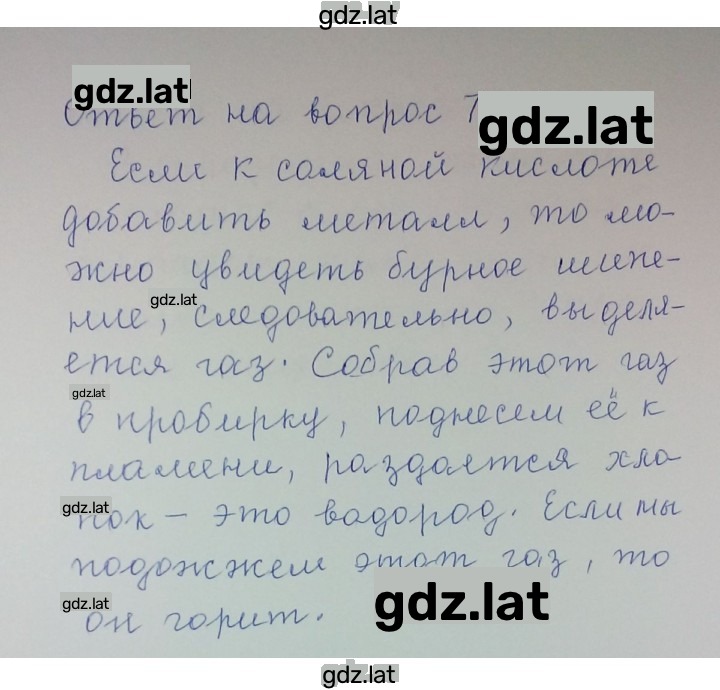 gdz.lat
gdz.lat
Ответ на вопрос
gdz.lat
Если к соляной кислоте
добавить металл, то мо-
жно увидеть бурное шипе-
gdz.lat
ние, следовательно, выделя-
ется газ. Собрав этот газ
gdz.lat
в пробирку, поднесем её к
пламени, раздается хло-
gdz.lat
пок – это водород. Если мы
подожжем этот газ, то
gdz.lat
он горит.
gdz.lat
gdz.lat